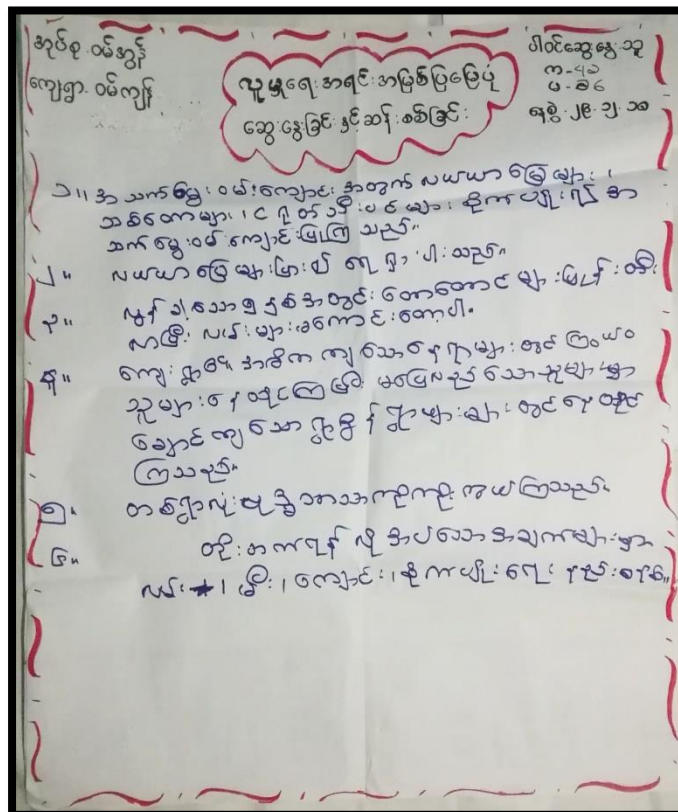 အုပ်စု ဝမ်အွန်
ကျေးရွာ ဝမ်ကျန်
လူမှုရေးအရင်းအမြစ်ပြမြေပုံ
ဆွေးနွေးခြင်းနှင့်ဆန်းစစ်ခြင်း
ပါဝင်ဆွေးနွေးသူ
က -
မ -
ရက်စွဲ
၁။ အသက်မွေးဝမ်းကျောင်းအတွက် လယ်ယာမြေများ၊
သစ်တောများ၊ ငရုတ်သီးပင်များ စိုက်ပျိုး၍ အ
သက်မွေးဝမ်းကျောင်းပြုကြသည်။
၂။ လယ်ယာမြေများ ရှိပါသည်။
၃။ လွန်ခဲ့သော ၅ နှစ်အတွင်း တောတောင်များ
လာပြီး လမ်းများမကောင်းတော့ပါ။
၄။ ကျေးရွာ၏ အဓိကကျသောနေရာများတွင် ကြွယ်ဝ
သူများနေထိုင်ကြပြီး မပြေလည်သောသူများမှာ
ချောင်ကျသော ရွာစွန်ရွာဖျားများတွင် နေထိုင်
ကြသည်။
၅။ တစ်ရွာလုံး ဗုဒ္ဓဘာသာ ကိုးကွယ်ကြသည်။
၆။ တိုးတက်ရန် လိုအပ်သောအချက်များမှာ
လမ်း၊ မီး၊ ကျောင်း၊ စိုက်ပျိုးရေးနည်းစနစ်။